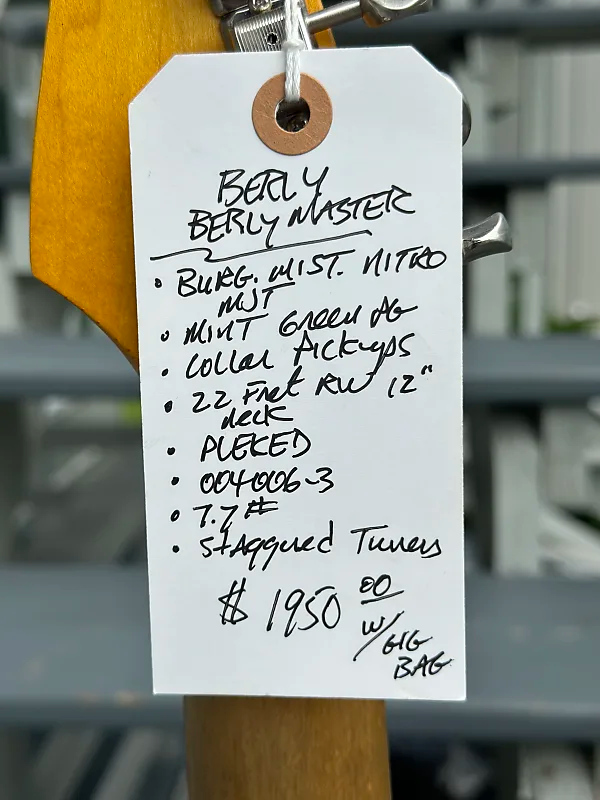 BERLY
BERLY MASTER
• BURG. MIST. NITRO
MJT
• MINT Green PG
• Collar Pickups
• 22 Fret RW 12"
neck
• PLEKED
• 004006-3
• 7.7 #
• Staggered Tuners
$ 1950 00
w/ GIG
BAG